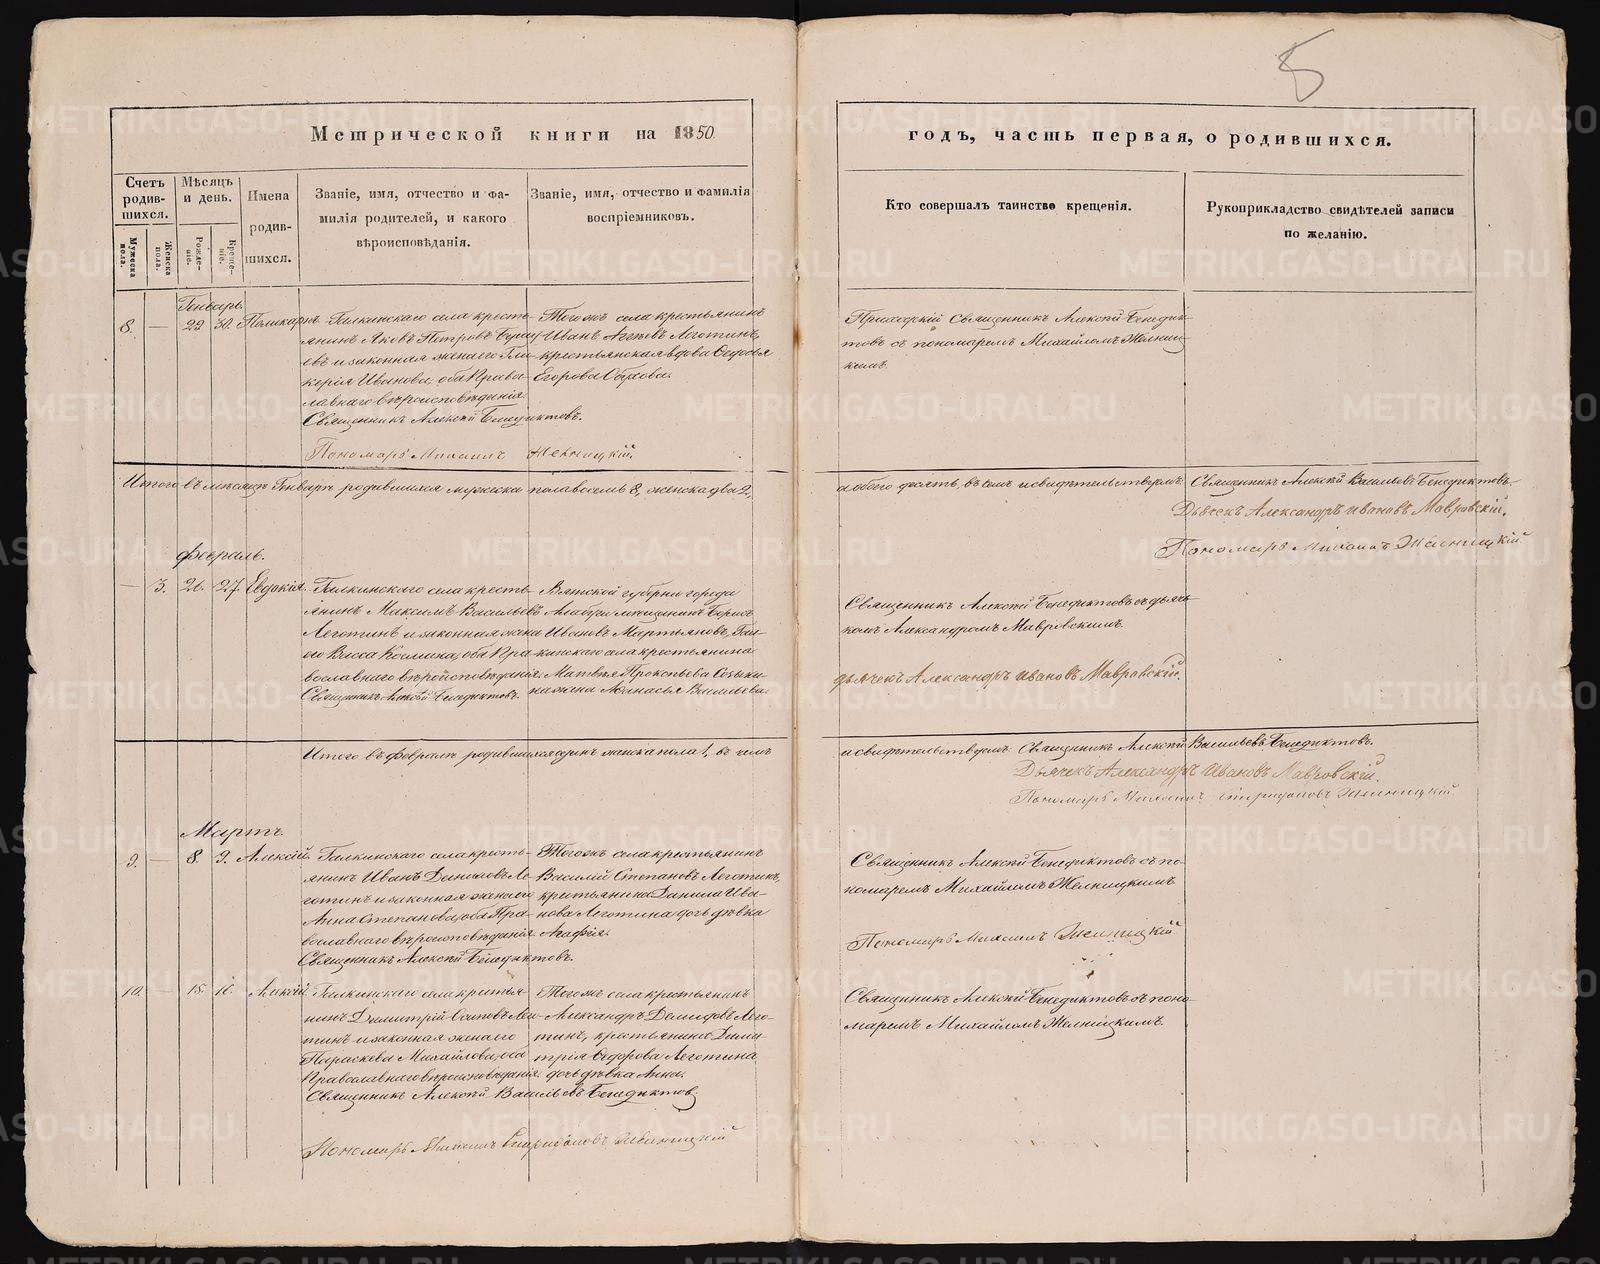 5
Метрической книги на 1850
годъ, часть первая, о родившихся.
Счетъ родив-шихся.
Мужеска пола.
Женска пола.
Мѣсяцъ и день.
Рожде-ніе.
Креще-ніе.
Имена родив-шихся.
Званіе, имя, отчество и фа-
милія родителей, и какого
вѣроисповѣданія.
Званіе, имя, отчество и фамилія
воспріемниковъ.
Кто совершалъ таинство крещенія.
Рукоприкладство свидѣтелей записи
по желанію.
Генварь.
8. — 22 30. Поликарпъ.
Галкинскаго села кресть-
янинъ Яковъ Петровъ
евъ и законная жена его Гли-
керія Иванова, оба Право-
славнаго вѣроисповѣданія.
Священникъ Алексій Бенедиктовъ.
Пономарь Михаилъ Желницкій.
Тогожъ села крестьянинъ
Иванъ Леготинъ,
крестьянская вдова Ѳедосья
Егорова Обухова.
Приходскій Священникъ Алексій Бенедик-
товъ съ пономаремъ Михайломъ Желниц-
кимъ.
Итого въ мѣсяцѣ Генварѣ родившихся мужеска пола восемь 8, женска два 2,
а обоего десять, въ чемъ и свидѣтельствуемъ: Священникъ Алексій Васильевъ Бенедиктовъ.
Дьячекъ Александръ Ивановъ Мавровскій.
Пономарь Михаилъ Желницкій.
Февраль.
— 3. 26. 27. Евдокія.
Галкинскаго села кресть-
янинъ Максимъ Васильевъ
Леготинъ и законная жена
его Васса Космина, оба Пра-
вославнаго вѣроисповѣданія.
Священникъ Алексій Бенедиктовъ.
Вятской губерніи города
Алабуги мѣщанинъ Борисъ
Ивановъ Мартьяновъ, Гал-
кинскаго села крестьянина
Матвѣя Прокопьева
жена Аѳанасья Васильева.
Священникъ Алексій Бенедиктовъ съ дьяч-
комъ Александромъ Мавровскимъ.
дьячекъ Александръ Ивановъ Мавровскій.
Итого въ Февралѣ родившихся одинъ женска пола 1, въ чемъ
и свидѣтельствуемъ: Священникъ Алексій Васильевъ Бенедиктовъ.
Дьячекъ Александръ Ивановъ Мавровскій.
Пономарь Михаилъ Спиридоновъ Желницкій.
Мартъ.
9. — 8. 9. Алексій.
Галкинскаго села кресть-
янинъ Иванъ Даниловъ Ле-
готинъ и законная жена его
Анна Степанова, оба Пра-
вославнаго вѣроисповѣданія.
Священникъ Алексій Бенедиктовъ.
Тогожъ села крестьянинъ
Василій Степановъ Леготинъ,
крестьянина Данила Ива-
нова Леготина дочь дѣвка
Агафія.
Священникъ Алексій Бенедиктовъ съ по-
номаремъ Михайломъ Желницкимъ.
Пономарь Михаилъ Желницкій
10. — 15. 16. Алексій.
Галкинскаго села крестья-
нинъ Димитрій Осиповъ Лего-
тинъ и законная жена его
Параскева Михайлова, оба
Православнаго вѣроисповѣданія.
Священникъ Алексій Васильевъ Бенедиктовъ
Пономарь Михаилъ Спиридоновъ Желницкій
Тогожъ села крестьянинъ
Александръ Демидовъ Лего-
тинъ, крестьянина Дими-
трія Ѳедорова Леготина
дочь дѣвка Анна.
Священникъ Алексій Бенедиктовъ съ поно-
маремъ Михайломъ Желницкимъ.
METRIKI.GASO-URAL.RU